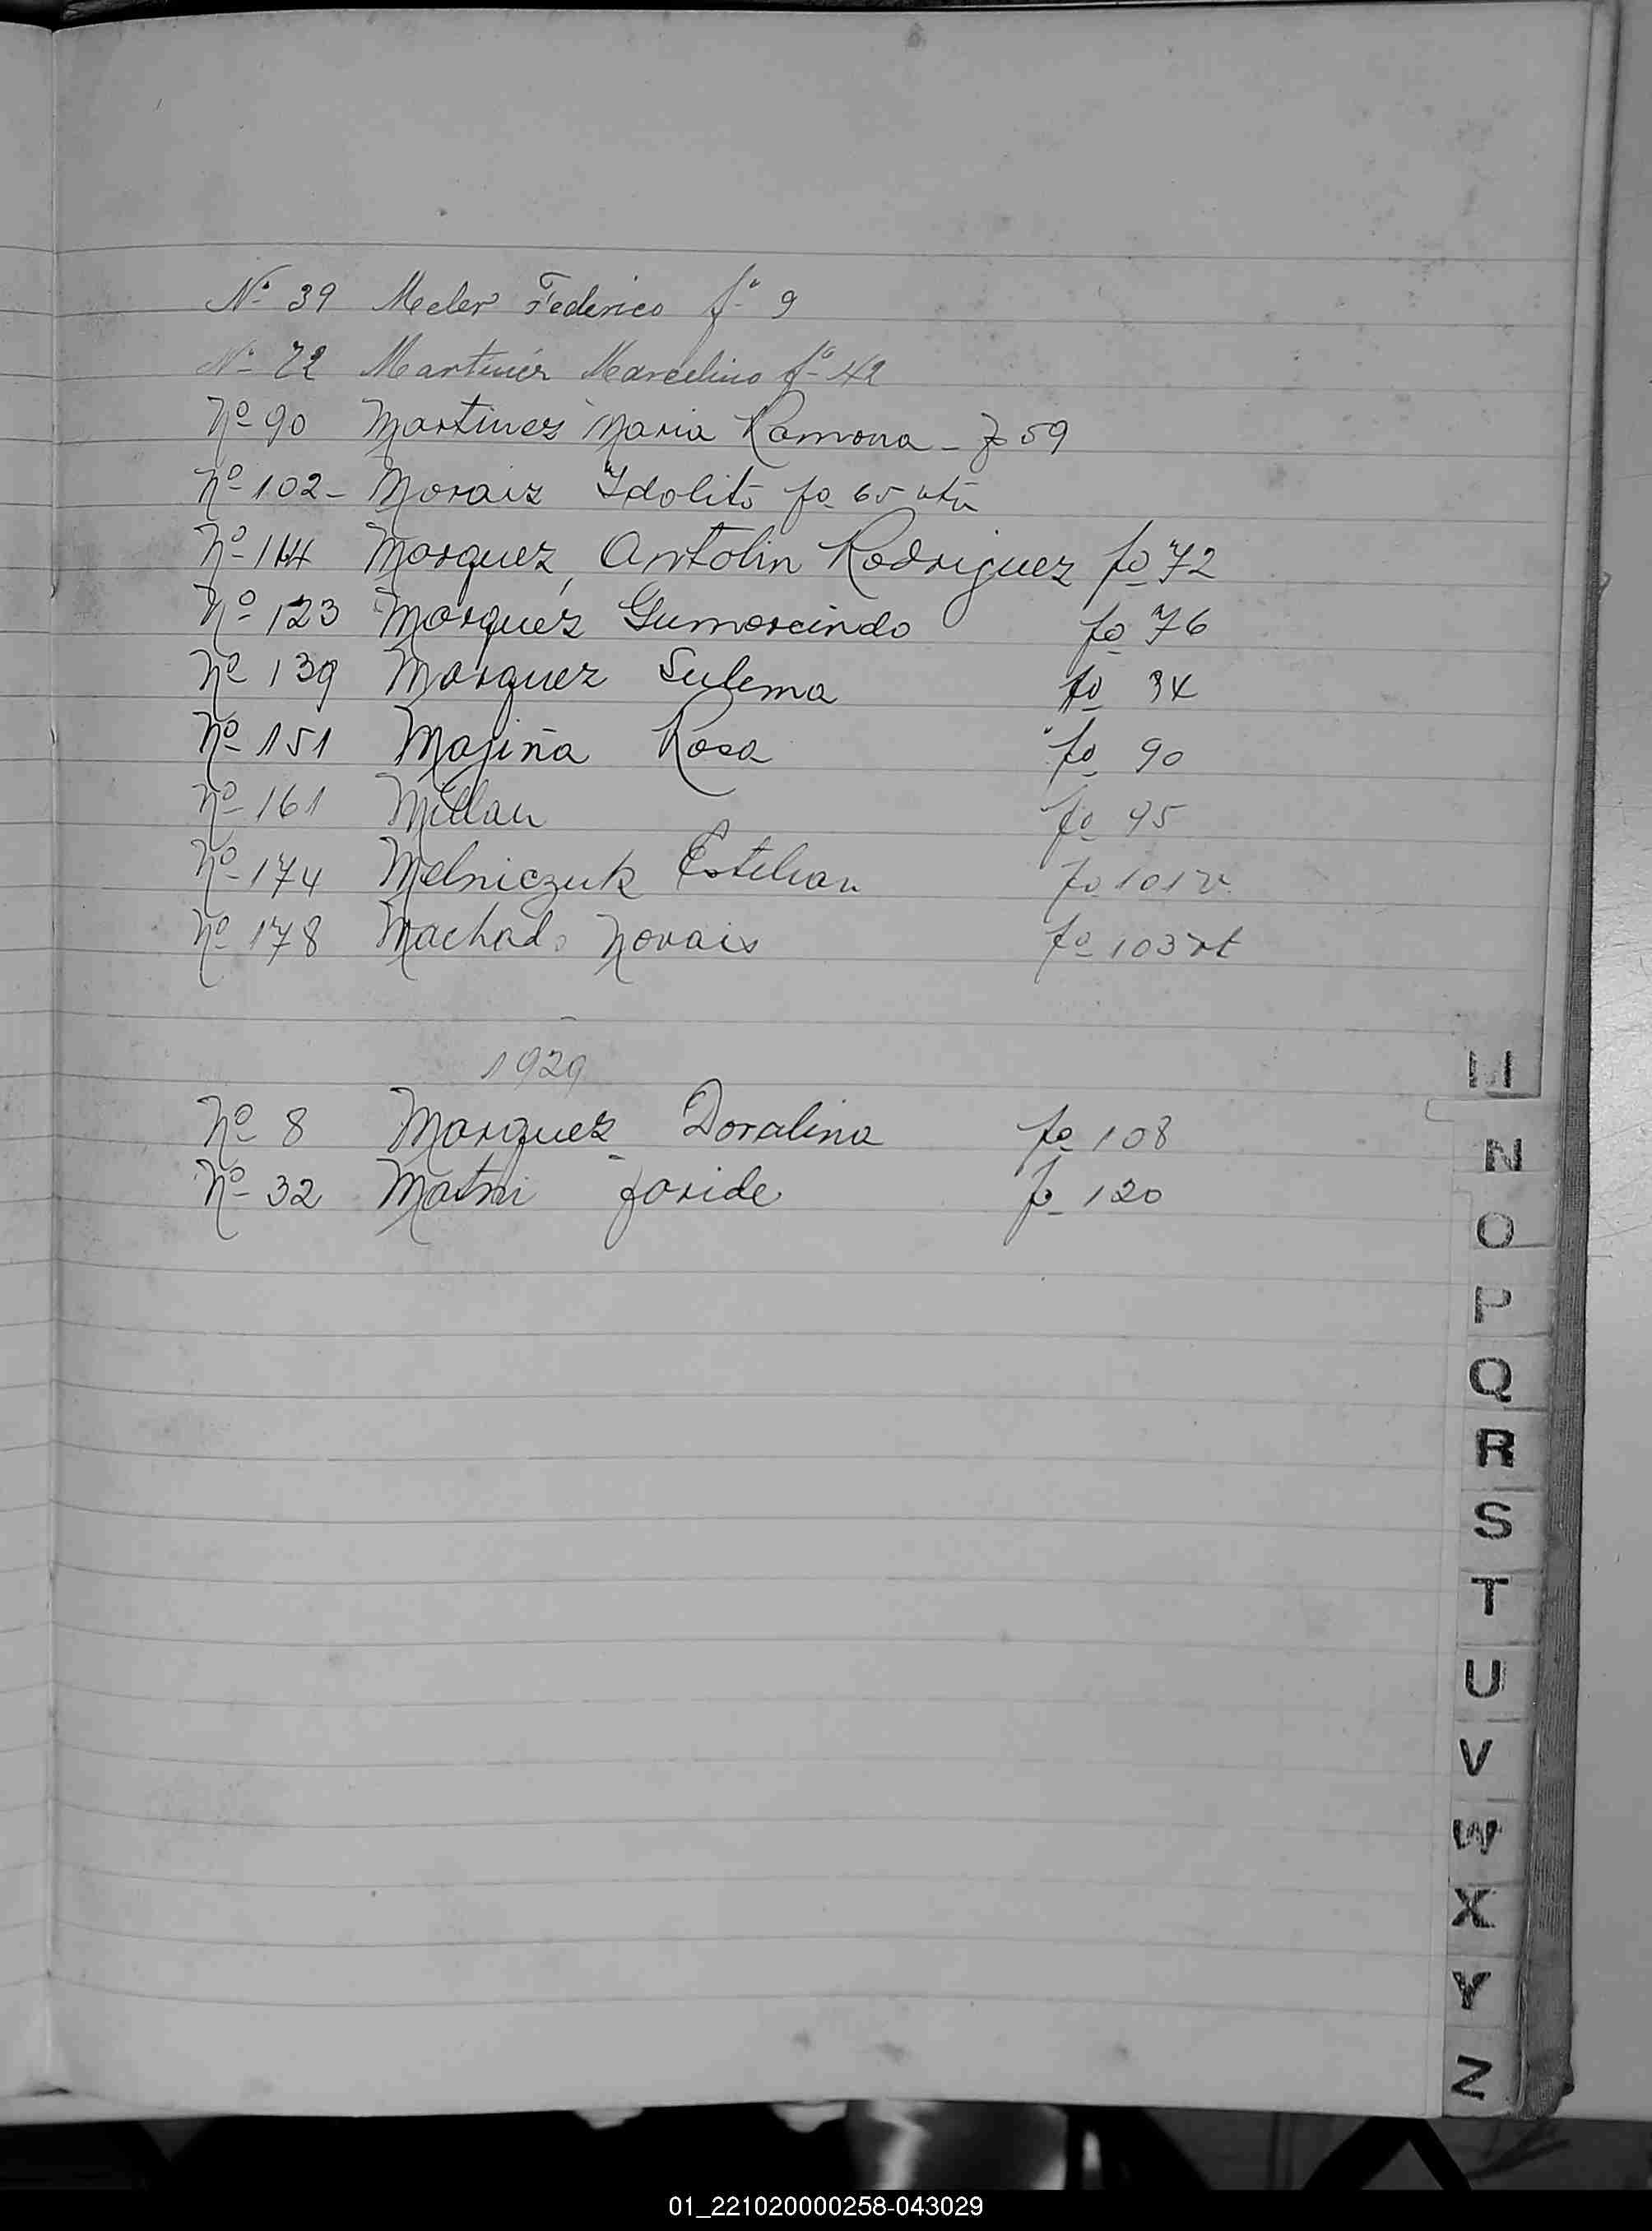 Nº 39 Meler Federico fº 9
Nº 72 Martinez Marcelino fº 42
Nº 90 Martinez Maria Ramona - fo 59
Nº 102 - Morais Idolito fo 65 vta
Nº 114 Marquez, Antolin Rodriguez fo 72
Nº 123 Marquez Gumercindo fo 76
Nº 139 Marquez Sulema fo 34
Nº 151 Majiña Rosa fo 90
Nº 161 Millan fo 95
Nº 174 Melniczuk Esteban fo 101 v.
Nº 178 Machado Novais fo 103 vt
1929
Nº 8 Marquez Doralina fo 108
Nº 32 Matni faride fo 120
M
N
O
P
Q
R
S
T
U
V
W
X
Y
Z
01_221020000258-043029